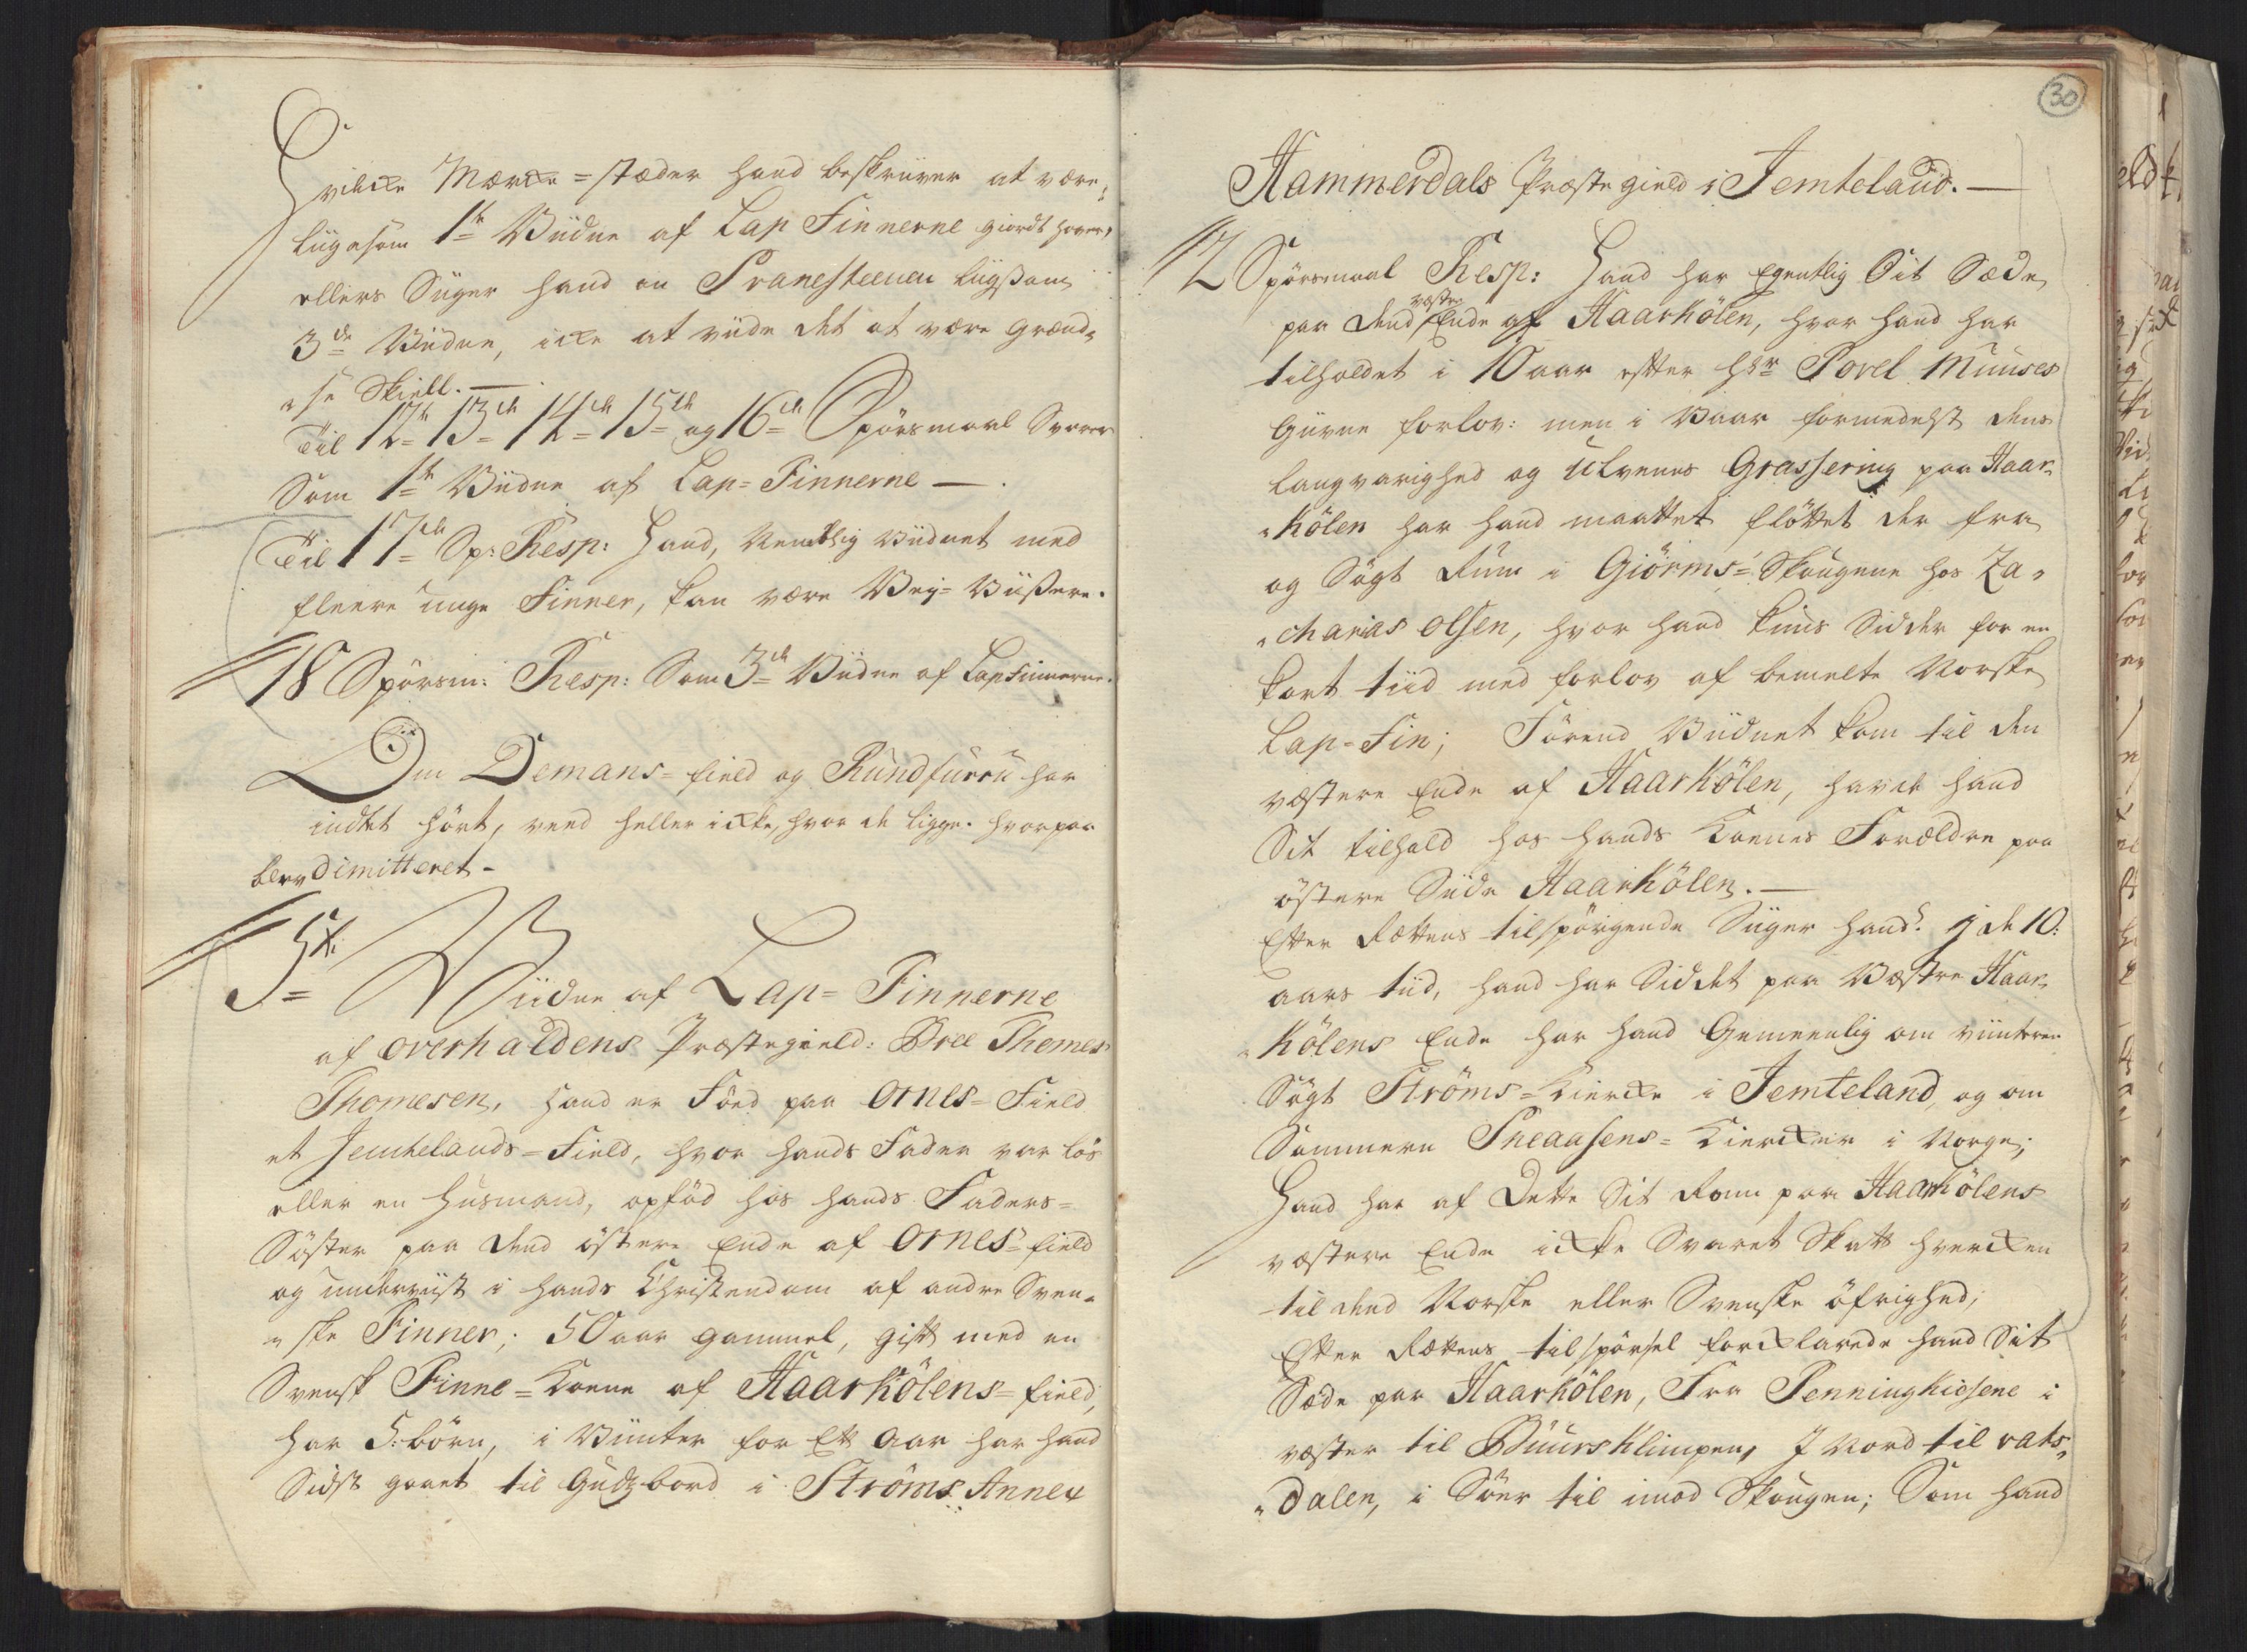 Hvilcke Mærcke-stæder hand beskriver at være,
liigesom 1te Viidne af Lap Finnerne giordt haver,
ellers Siiger hand on Tranesteenen liigsom
3de Viidne, icke at viide det at være Grænd-
"se Skiell. —
Til 12te 13de 14de 15de og 16de Spörsmaal Svarer
Som 1te Viidne af Lap-Finnerne —.
Til 17de Sp: Resp: Hand, Nembl:ig Viidnet med
fleere unge Finner, kan være Vey-Viissere.
18 Spörsm: Resp: Som 3de Viidne af Lapfinnerne.
Om Demans-field og Rundfurru har
indtet hört, veed heller icke, hvor de ligge. hvorpaa
blev Dimitteret-
5te Viidne af Lap-Finnerne
af Overhaldens Præstegield: Thomes
Thomesen, hand er Föed paa Ornes-Field
et Jemtelands-Field, hvor hands Fader var lös
eller en Huusmand, opföd hos hands Faders-
Söster paa dend östere Ende af Ornes-field
og underviist i hands Christendom af andre Sven-
"ske Finner; 50 aar gammel, gift med en
Svensk Finne-Konne af Haarkölens-field,
har 5. börn, i Viinter for Et Aar har hand
Sidst gaaet til Gudz bord i Ströms Annex
30
Hammerdals Præstegield i Jemteland. —
2 Spörsmaal Resp: Hand har Egentlig Sit Sæde
paa dend vestre Ende af Haarkölen, hvor hand har
tilholdet i 10 aar efter Hr Povel Muuses
Givne forlov: men i Vaar formedelst dens
langvarighed og Ulvenes Grassering paa Haar-
"kölen har hand maattet flöttet der fra
og Sögt Rum i Giörms-Skougene hos Za-
"charias Olsen, hvor hand kuns Sidder for en
kort tiid med forlov af bemelte Norske
Lap-Fin; Förend Viidnet kom til den
vestere Ende af Haarkölen, havde hand
Sit tilhold hos hands Konnes Forældre paa
östere Siide Haarkölen. —
Efter Rettens tilspörgende Siiger hand: I de 10.
aars tiid, hand har Siddet paa Vestre Haar-
"kölens Ende har hand Gemeenlig om vinteren
Sögt Ströms-Kiercke i Jemteland, og om
Sommeren Sneaasens-Kiercker i Norge;
Hand har af Dette Sit Rom paa Haarkölens
vestere Ende icke Svaret Skatt hvercken
til dend Norske eller Svenske öfrighed;
Efter Rettens tilspörsel forclarede hand Sit
Sæde paa Haarkölen, Fra Penningkiesene i
vester til Buursklimpen, I Nord til rats-
"dalen, i Söer til imod Skougen; Som hand